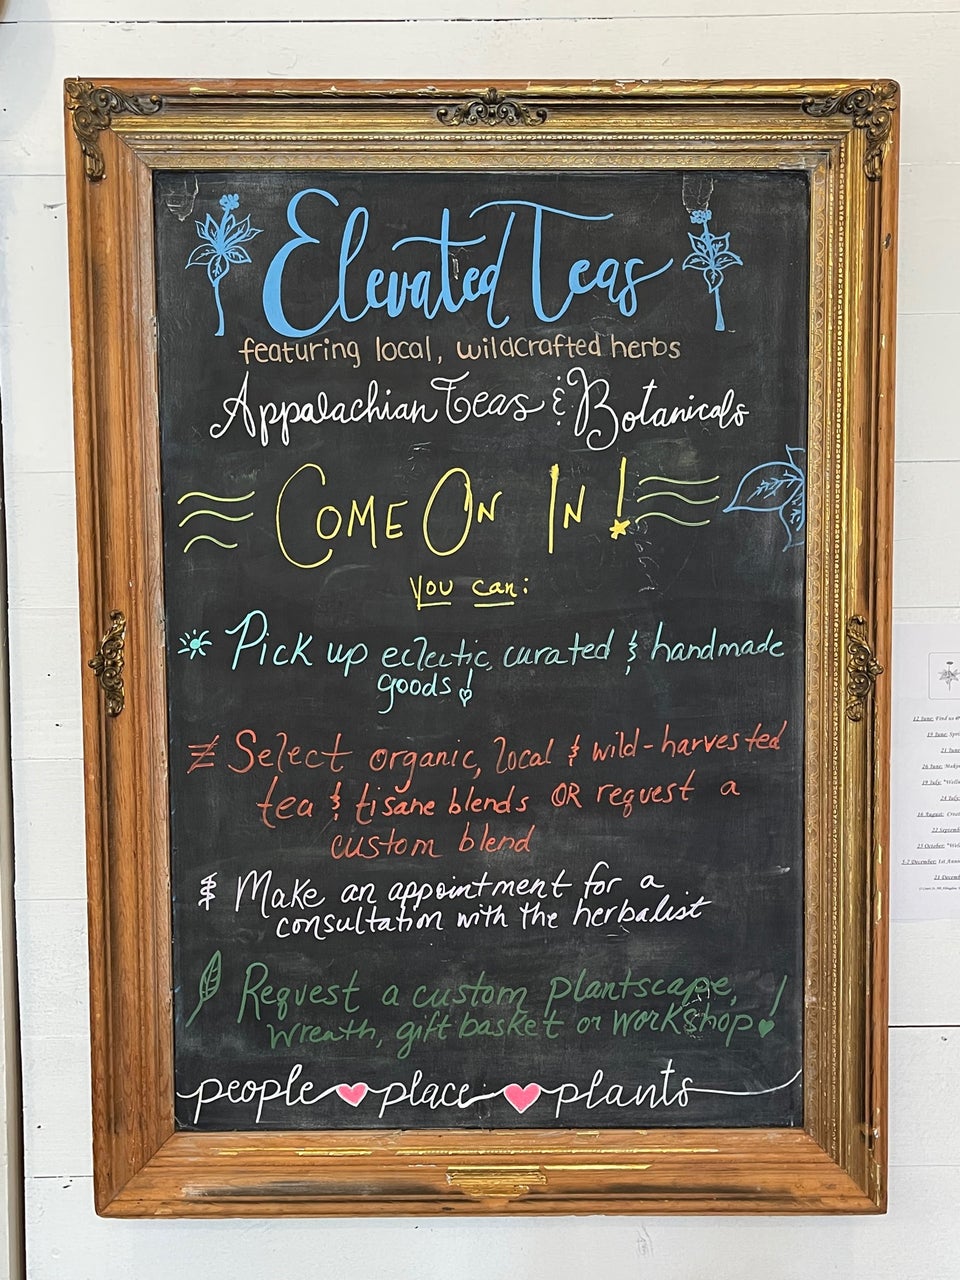 Elevated Teas
featuring local, wildcrafted herbs
Appalachian Teas & Botanicals
COME ON IN!
You can:
Pick up eclectic, curated & handmade
goods!
Select organic, local & wild-harvested
tea & tisane blends OR request a
custom blend
Make an appointment for a
consultation with the herbalist
Request a custom plantscape,
wreath, gift basket or workshop!
people place plants
12 June: Find us
19 June:
21 June
26 June:
19 July:
24 July:
16 August:
23 October:
5-7 December: